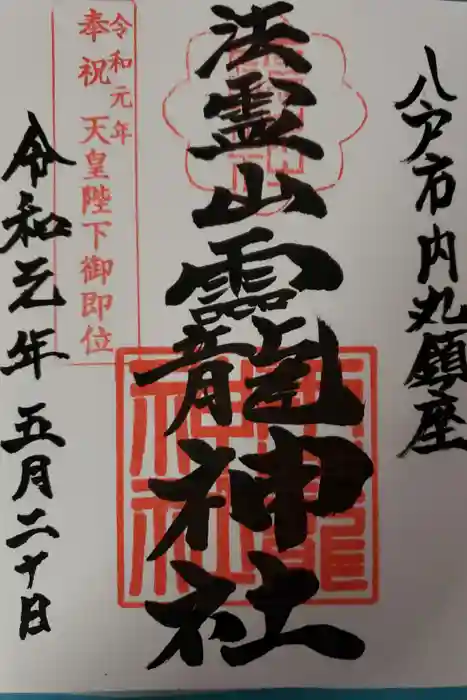 八戸市内丸鎮座
法霊山龗神社
令和元年
奉祝 天皇陛下御即位
令和元年 五月二十日
龗
神社